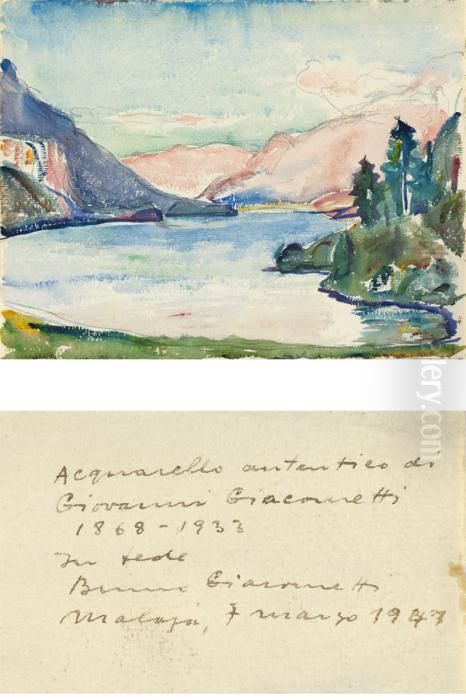 Acquarello autentico di
Giovanni Giacometti
1868-1933
In fede
Bruno Giacometti
Maloja, 7 marzo
llery.com